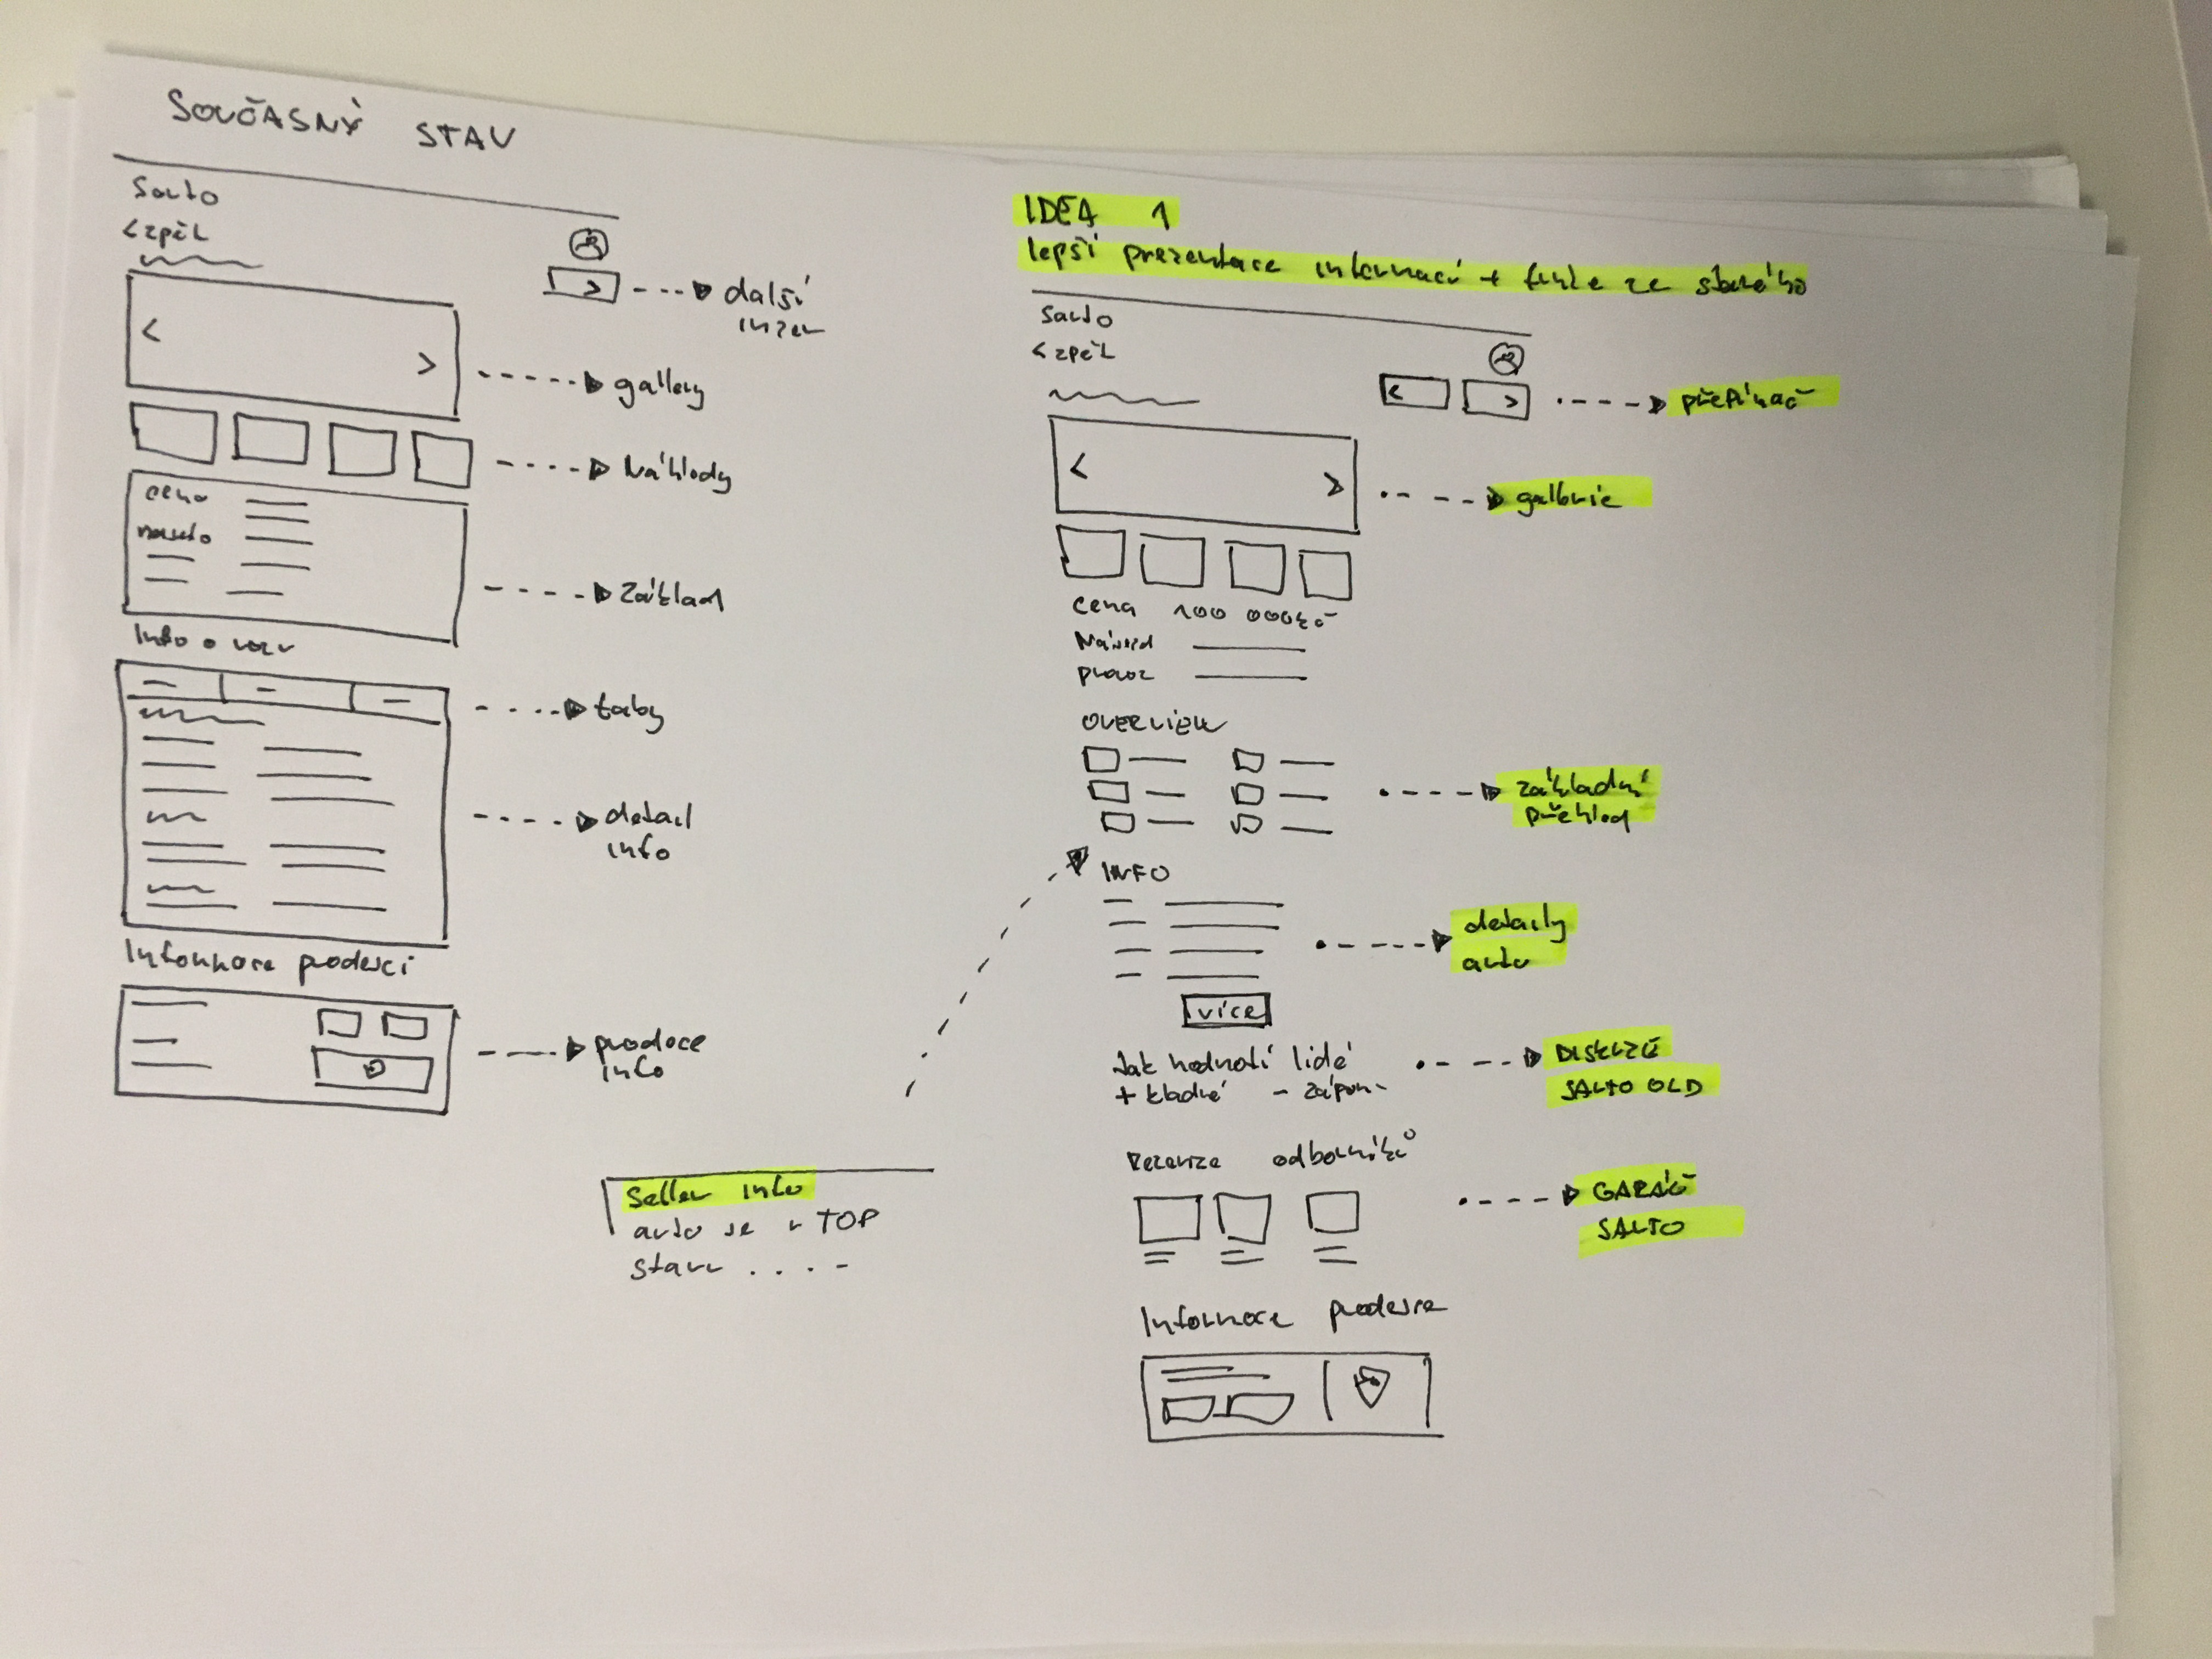 SOUČASNÝ STAV
Sauto
< zpět
další
inzer
gallery
náhledy
cena
základ
Info o vozu
taby
detail
info
Informace prodejci
prodejce
info
Seller info
auto je v TOP
stavu . . . -
IDEA 1
lepší prezentace informací + funkce ze starého
Sauto
< zpět
přepínač
galerie
Cena 100 000Kč-
Najeto
provoz
OVERVIEW
základní
přehled
INFO
detaily
auta
více
Jak hodnotí lidé
+ kladné - zápor.
DISKUZE
SAUTO OLD
Recenze odborníků
GARÁŽ
SAUTO
Informace prodejce